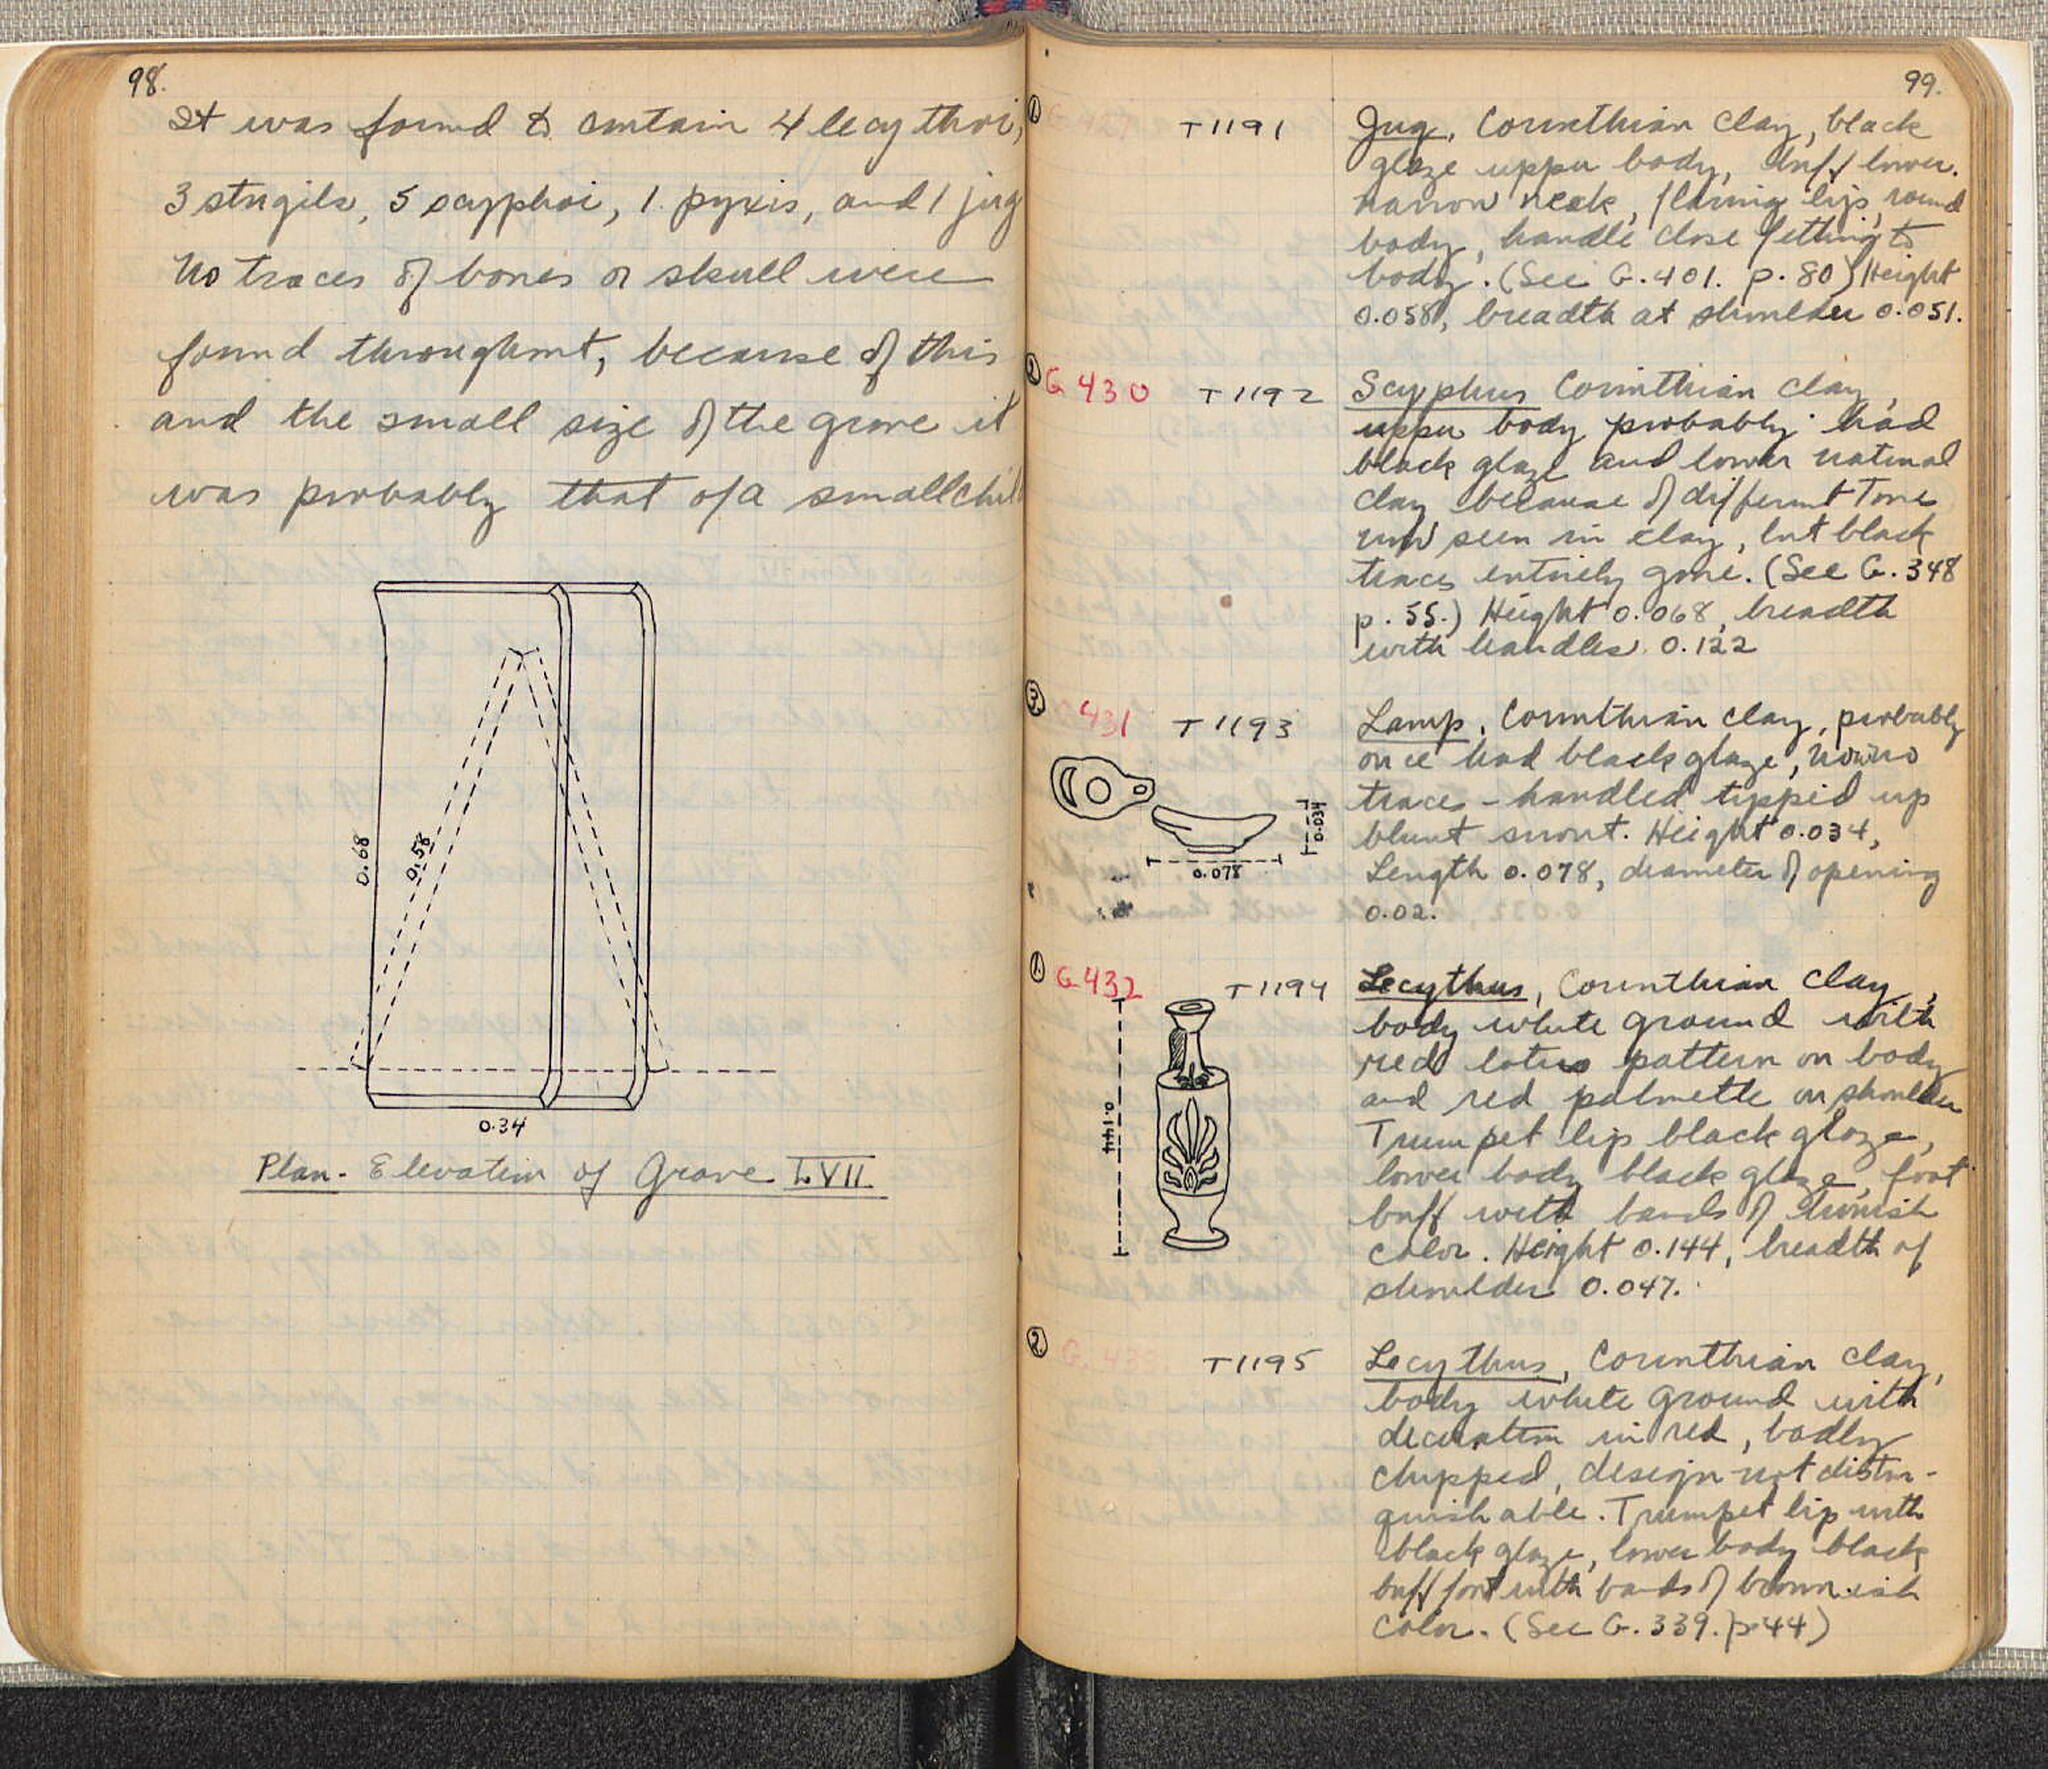 98.
It was found to contain 4 lecythoi,
3 strigils, 5 scyphoi, 1. pyxis, and 1 jug
No traces of bones or skull were
found throughout, because of this
and the small size of the grave it
was probably that of a small child
0.68
0.58
0.34
Plan - Elevation of Grave LVII
99.
1. T1191 Jug, Corinthian clay, black
glaze upper body, buff lower.
narrow neck, flaring lip, round
body, handle close fitting to
body. (See G.401. p.80) Height
0.058, breadth at shoulder 0.051.
2. G 430 T1192 Scyphus Corinthian clay,
upper body probably had
black glaze and lower natural
clay because of different tone
now seen in clay, but black
traces entirely gone. (See G.348
p.55.) Height 0.068, breadth
with handles 0.122
3. G 431 T1193 Lamp, Corinthian clay, probably
once had black glaze, now no
traces - handled tipped up
blunt snout. Height 0.034,
Length 0.078, diameter of opening
0.02.
0.034
0.078
1. G 432 T1194 Lecythus, Corinthian clay,
body white ground with
red lotus pattern on body
and red palmette on shoulder
Trumpet lip black glaze,
lower body black glaze, foot
buff with bands of
color. Height 0.144, breadth of
shoulder 0.047.
0.144
2. G. 433 T1195 Lecythus, Corinthian clay,
body white ground with
decoration in red, badly
chipped, design not distin-
guishable. Trumpet lip with
black glaze, lower body black
buff foot with bands of brownish
color. (See G.339. p.44)